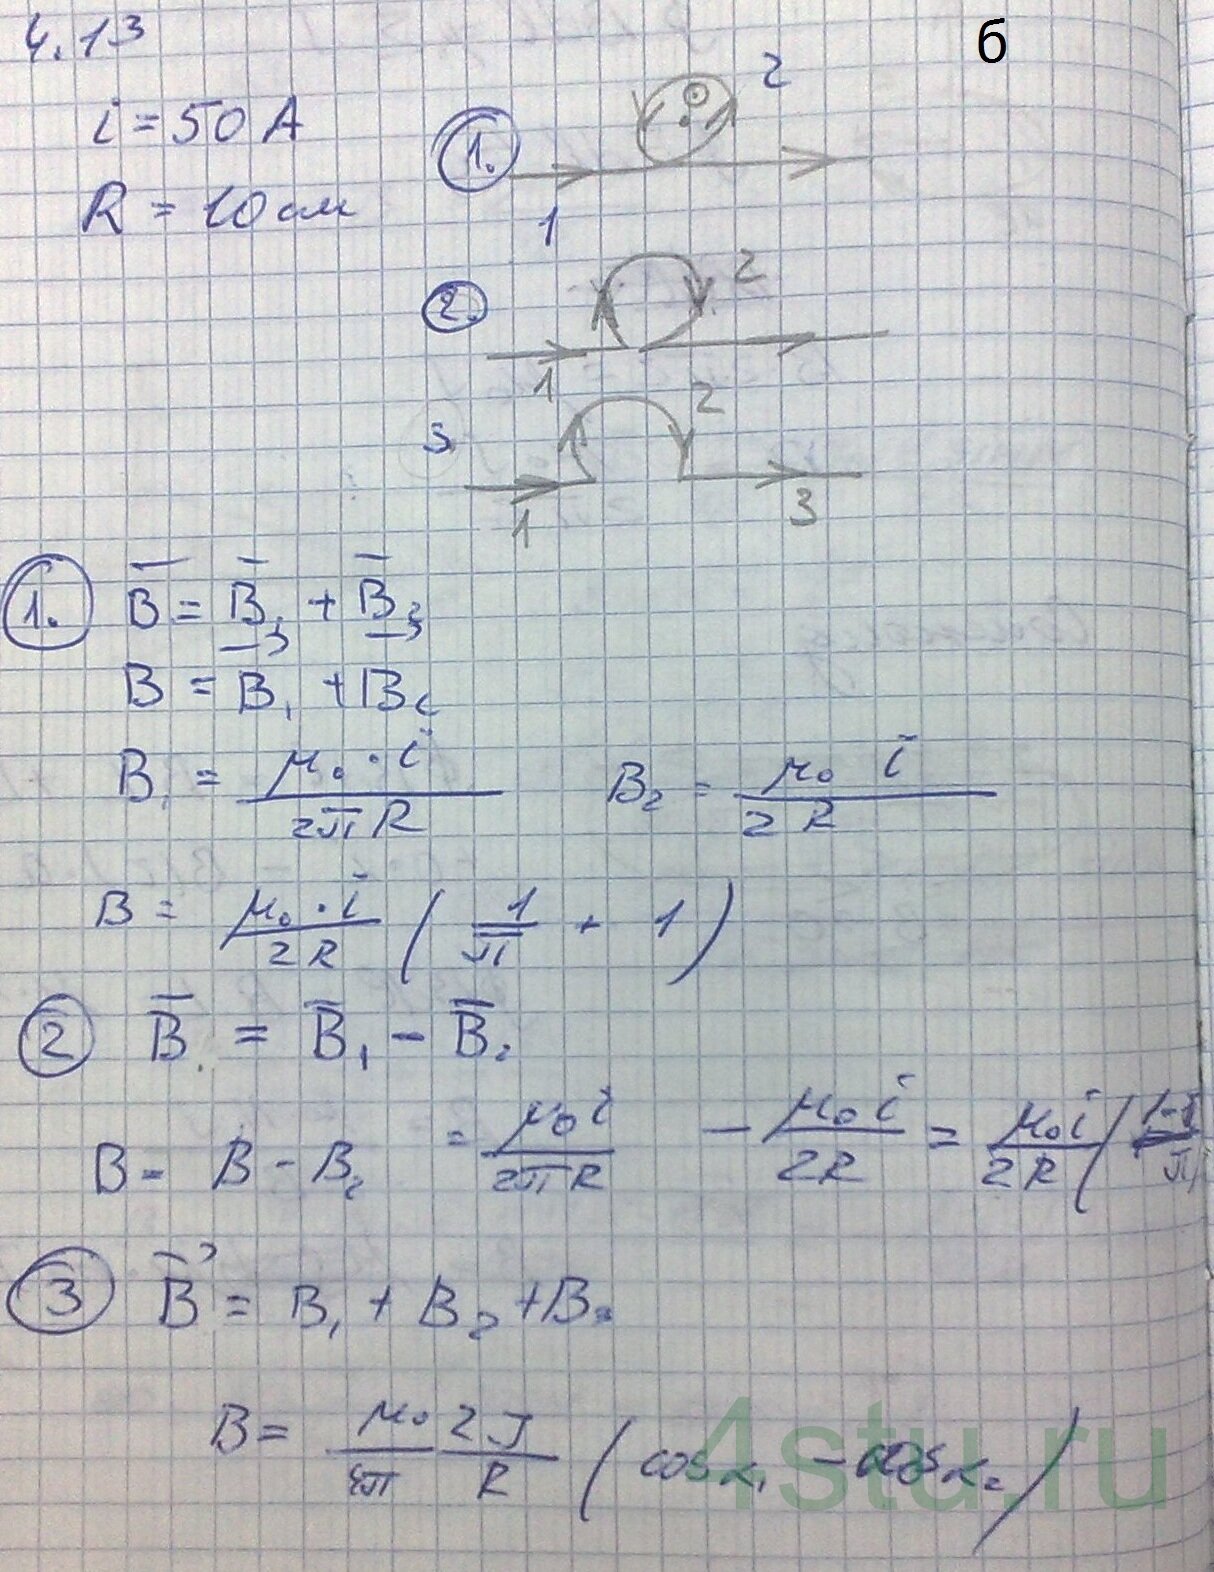 4.13
б
i = 50 A
R = 10 см
1. 1 2
2. 1 2
3. 1 2 3
1. B̅ = B̅₁ + B̅₂
B = B₁ + B₂
B₁ = μ₀ · i / 2πR B₂ = μ₀ i / 2R
B = μ₀ · i / 2R ( 1/π + 1 )
2 B̅ = B̅₁ − B̅₂
B = B − B₂ = μ₀ i / 2πR − μ₀ i / 2R = μ₀ i / 2R (
3 B⃗ = B₁ + B₂ + B₃
B = μ₀ / 4π 2J / R ( cos α₁ − cos α₂ )
4stu.ru